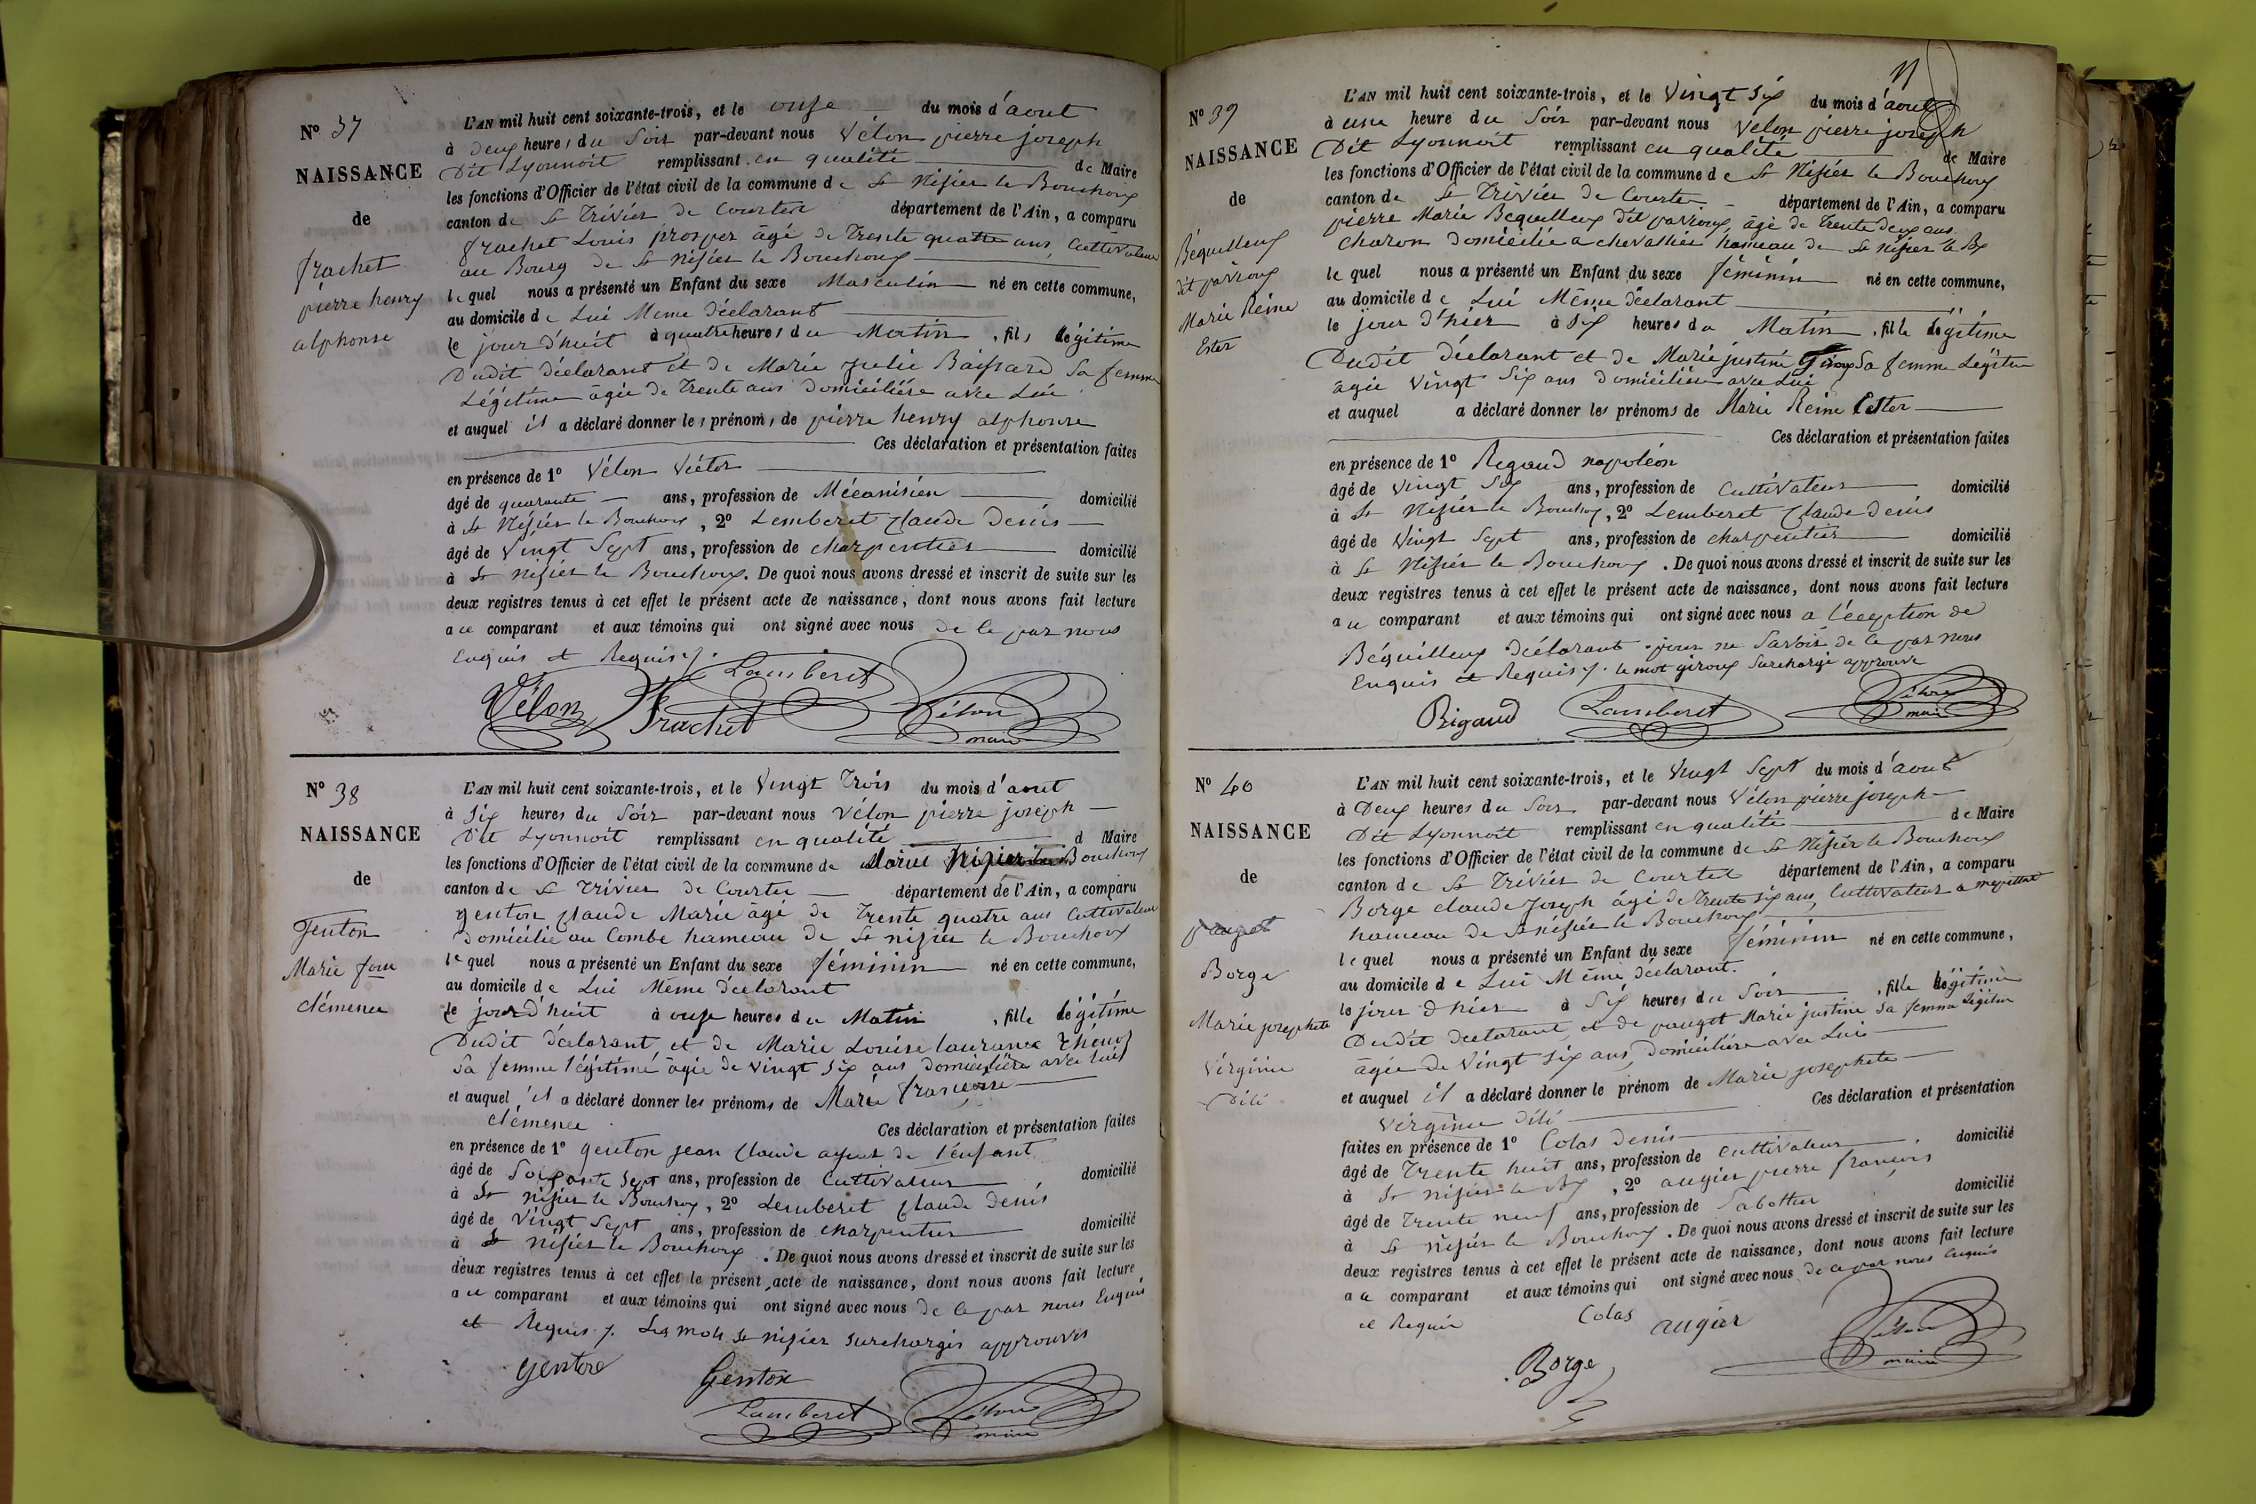 Nº 37
NAISSANCE
de
frachet
pierre henry
alphonse
L'AN mil huit cent soixante-trois, et le onze du mois d'aout
à deux heures du Soir par-devant nous Vélon pierre joseph
Dit Lyonnoit remplissant en qualité de Maire
les fonctions d'Officier de l'état civil de la commune de St Nisier le Bouchoux
canton de St Trivier de Courtes département de l'Ain, a comparu
frachet Louis prosper âgé de Trente quatre ans, Cultivateur
au Bourg de St Nisier le Bouchoux
le quel nous a présenté un Enfant du sexe Masculin né en cette commune,
au domicile de Lui Meme déclarant
le jour d'huit à quatre heures du Matin, fils légitime
Dudit déclarant et de Marie Julie Baissard Sa femme
Légitime âgée de Trente ans domiciliére avec Lui
et auquel il a déclaré donner les prénoms de pierre henry alphonse
Ces déclaration et présentation faites
en présence de 1º Vélon Victor
âgé de quarante ans, profession de Mécanisien domicilié
à St Nisier le Bouchoux, 2º Lemberet Claude Denis
âgé de Vingt Sept ans, profession de charpentier domicilié
à St nisier le Bouchoux. De quoi nous avons dressé et inscrit de suite sur les
deux registres tenus à cet effet le présent acte de naissance, dont nous avons fait lecture
au comparant et aux témoins qui ont signé avec nous de ce par nous
Enquis et Requis
Lamberet
Vélon Frachet Vélon
maire
Nº 38
NAISSANCE
de
Genton
Marie fçoise
clémence
L'AN mil huit cent soixante-trois, et le Vingt Trois du mois d'aout
à Six heures du Soir par-devant nous Vélon pierre joseph
Dit Lyonnoit remplissant en qualité d Maire
les fonctions d'Officier de l'état civil de la commune de Nizier le Bouchoux
canton de St Trivier de Courtes département de l'Ain, a comparu
genton Claude Marie âgé de Trente quatre ans Cultivateur
domicilié au Combe hameau de St nizier le Bouchoux
le quel nous a présenté un Enfant du sexe féminin né en cette commune,
au domicile de Lui Meme déclarant
le jour d'huit à onze heures du Matin, fille légitime
Dudit déclarant et de Marie Louise laurance
Sa femme légitime âgée de vingt Six ans domiciliére avec lui
et auquel il a déclaré donner les prénoms de Marie françoise
clémence Ces déclaration et présentation faites
en présence de 1º genton jean Claude ayeux de l'enfant
âgé de Soixante Sept ans, profession de Cultivateur domicilié
à St nisier le Bouchoux, 2º Lemberet Claude Denis
âgé de Vingt Sept ans, profession de charpentier domicilié
à St Nisier le Bouchoux. De quoi nous avons dressé et inscrit de suite sur les
deux registres tenus à cet effet le présent acte de naissance, dont nous avons fait lecture
au comparant et aux témoins qui ont signé avec nous de ce par nous Enquis
et Requis. Les mots St nizier surchargés approuvés
genton Genton
Lamberet Vélon
maire
Nº 39
NAISSANCE
de
Béquilleux
dit parroux
Marie Reine
Ester
L'AN mil huit cent soixante-trois, et le Vingt Six du mois d'aout
à une heure du Soir par-devant nous Vélon pierre joseph
Dit Lyonnoit remplissant en qualité de Maire
les fonctions d'Officier de l'état civil de la commune de St Nisier le Bouchoux
canton de St Trivier de Courtes département de l'Ain, a comparu
pierre Marie Bequilleux dit parroux, âgé de Trente deux ans
charon domicilié a chevalliée hameau de St nisier le Bx
le quel nous a présenté un Enfant du sexe féminin né en cette commune,
au domicile de Lui Même déclarant
le jour d'hier à Six heures du Matin, fille légitime
Dudit déclarant et de Marie justine Giroux Sa femme Légitime
âgée Vingt Six ans domiciliére avec Lui
et auquel a déclaré donner les prénoms de Marie Reine Ester
Ces déclaration et présentation faites
en présence de 1º Regaud napoléon
âgé de Vingt Six ans, profession de Cultivateur domicilié
à St Nisier le Bouchoux, 2º Lemberet Claude Denis
âgé de Vingt Sept ans, profession de charpentier domicilié
à St Nisier le Bouchoux. De quoi nous avons dressé et inscrit de suite sur les
deux registres tenus à cet effet le présent acte de naissance, dont nous avons fait lecture
au comparant et aux témoins qui ont signé avec nous a l'éception de
Béquilleux déclarant pour ne Savoir de ce par nous
Enquis et Requis. le mot giroux Surchargé approuvé
Rigaud Lamberet Vélon
maire
Nº 40
NAISSANCE
de
pauget
Borge
Marie josephete
Virginie
Déli
L'AN mil huit cent soixante-trois, et le Vingt Sept du mois d'aout
à Deux heures du Soir par-devant nous Vélon pierre joseph
Dit Lyonnoit remplissant en qualité de Maire
les fonctions d'Officier de l'état civil de la commune de St Nisier le Bouchoux
canton de St Trivier de Courtes département de l'Ain, a comparu
Borge claude Joseph âgé de Trente six ans, Cultivateur a
hameau de St nisier le Bouchoux
le quel nous a présenté un Enfant du sexe féminin né en cette commune,
au domicile de Lui Même déclarant.
le jour d'hier à Six heures du Soir, fille légitime
Dudit declarant et de pauget Marie justine Sa femme Légitime
âgée de Vingt Six ans, domiciliére avec Lui
et auquel il a déclaré donner le prénom de Marie josephete
Virginie déli Ces déclaration et présentation
faites en présence de 1º Colas denis
âgé de Trente huit ans, profession de Cultivateur domicilié
à St nisier le Bx, 2º augier pierre françois
âgé de Trente neuf ans, profession de Sabottier domicilié
à St nisier le Bouchoux. De quoi nous avons dressé et inscrit de suite sur les
deux registres tenus à cet effet le présent acte de naissance, dont nous avons fait lecture
au comparant et aux témoins qui ont signé avec nous de ce par nous Enquis
et Requis Colas augier Vélon
Borge maire